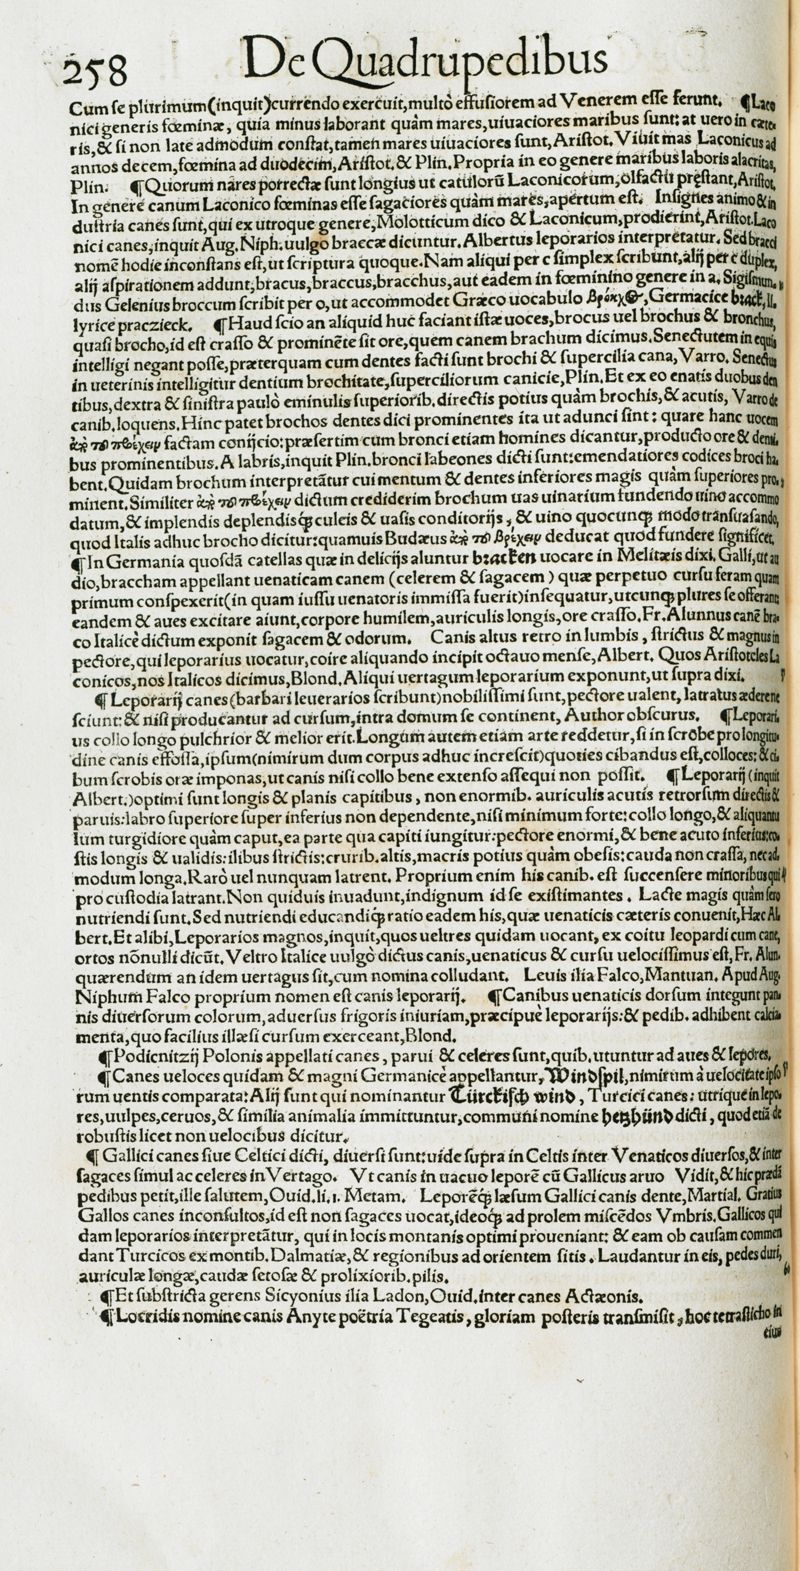 258 De Quadrupedibus
Cum se plurimum(inquit)currendo exercuit,multò effusiorem ad Venerem esse ferunt. ¶Laco
nici generis fœminæ, quia minus laborant quàm mares,uiuaciores maribus sunt: at uero in cæte-
ris,& si non late admodum constat,tamen mares uiuaciores sunt,Aristot. Viuit mas Laconicus ad
annos decem,fœmina ad duodecim,Aristot.& Plin. Propria in eo genere maribus laboris alacritas,
Plin. ¶Quorum nares porrectæ sunt longius ut catulorū Laconicorum,olfactu pręstant,Aristot.
In genere canum Laconico fœminas esse sagaciores quàm mares,apertum est. Insignes animo & in
dustria canes sunt,qui ex utroque genere,Molotticum dico & Laconicum,prodierint,Aristot.Laco
nici canes,inquit Aug. Niph.uulgo braccæ dicuntur. Albertus leporarios interpretatur. Sed bracci
nomē hodie inconstans est,ut scriptura quoque.Nam aliqui per c simplex scribunt,alij per c duplex,
alij aspirationem addunt,bracus,braccus,bracchus,aut eadem in fœminino genere in a. Sigismun.
dus Gelenius broccum scribit per o,ut accommodet Græco uocabulo βρόκχος,Germanice brack, Il.
lyrice praczieck. ¶Haud scio an aliquid huc faciant istæ uoces,brocus uel brochus & bronchus,
quasi brocho,id est crasso & prominēte sit ore,quem canem brachum dicimus.Senectutem in equis
intelligi negant posse,præterquam cum dentes facti sunt brochi & supercilia cana,Varro. Senectus
in ueterinis intelligitur dentium brochitate,superciliorum canicie,Plin.Et ex eo enatis duobus den
tibus,dextra & sinistra paulò eminulis superiorib.directis potius quàm brochis,& acutis, Varro de
canib.loquens.Hinc patet brochos dentes dici prominentes ita ut adunci sint: quare hanc uocem
factam conijcio:præsertim cum bronci etiam homines dicantur,producto ore & denti.
bus prominentibus. A labris,inquit Plin.bronci labeones dicti sunt:emendatiores codices broci ha.
bent.Quidam brochum interpretātur cui mentum & dentes inferiores magis quàm superiores pro.
minent.Similiter dictum crediderim brochum uas uinarium fundendo uino accommo
datum,& implendis deplendisq́; culeis & uasis conditorijs, & uino quocunq; modo transfusando,
quod Italis adhuc brocho dicitur:quamuis Budæus βρέχειν deducat quod fundere significet.
¶In Germania quosdā catellas quæ in delicijs aluntur bracken uocare in Melitæis dixi. Galli,ut au
dio,braccham appellant uenaticam canem (celerem & sagacem) quæ perpetuo cursu feram quam
primum conspexerit(in quam iussu uenatoris immissa fuerit)insequatur,utcunq; plures se offerant:
eandem & aues excitare aiunt,corpore humilem,auriculis longis,ore crasso.Fr. Alunnus canē bra-
co Italicè dictum exponit sagacem & odorum. Canis altus retro in lumbis, strictus & magnus in
pectore,qui leporarius uocatur,coire aliquando incipit octauo mense,Albert. Quos Aristoteles La
conicos,nos Italicos dicimus,Blond. Aliqui uertagum leporarium exponunt,ut supra dixi.
¶Leporarij canes(barbari leuerarios scribunt)nobilissimi sunt,pectore ualent, latratus ædere ne
sciunt:& nisi producantur ad cursum,intra domum se continent, Author obscurus. ¶Leporari.
us collo longo pulchrior & melior erit.Longum autem etiam arte reddetur,si in scrobe pro longitu.
dine canis effossa,ipsum(nimirum dum corpus adhuc increscit)quoties cibandus est,colloces: & ci.
bum scrobis oræ imponas,ut canis nisi collo bene extenso assequi non possit. ¶Leporarij (inquit
Albert.)optimi sunt longis & planis capitibus, non enormib. auriculis acutis retrorsum directis &
paruis:labro superiore super inferius non dependente,nisi minimum forte:collo longo,& aliquantu
lum turgidiore quàm caput,ea parte qua capiti iungitur:pectore enormi,& bene acuto inferius:co-
stis longis & ualidis:ilibus strictis:crurib.altis,macris potius quàm obesis:cauda non crassa, nec ad.
modum longa.Rarò uel nunquam latrent. Proprium enim his canib. est succensere minoribus qui
pro custodia latrant.Non quiduis inuadunt,indignum id se existimantes. Lacte magis quàm sero
nutriendi sunt.Sed nutriendi educandiq́; ratio eadem his,quæ uenaticis cæteris conuenit,Hæc Al.
bert.Et alibi,Leporarios magnos,inquit,quos ueltres quidam uocant, ex coitu leopardi cum cane,
ortos nōnulli dicūt. Veltro Italice uulgò dictus canis,uenaticus & cursu uelocissimus est,Fr. Alun.
quærendum an idem uertagus sit,cum nomina colludant. Leuis ilia Falco,Mantuan. Apud Aug.
Niphum Falco proprium nomen est canis leporarij. ¶Canibus uenaticis dorsum integunt pan-
nis diuersorum colorum,aduersus frigoris iniuriam,præcipuè leporarijs:& pedib. adhibent calcia-
menta,quo facilius illæsi cursum exerceant,Blond.
¶Podienitzij Polonis appellati canes, parui & celeres sunt,quib.utuntur ad aues & lepores.
¶Canes ueloces quidam & magni Germanicè appellantur, Windspil,nimirum à uelocitate ipso
rum uentis comparata:Alij sunt qui nominantur Türckisch wind, Turcici canes: utrique in lepo-
res,uulpes,ceruos,& similia animalia immittuntur,communi nomine hetzhünd dicti, quod etiā de
robustis licet non uelocibus dicitur.
¶Gallici canes siue Celtici dicti, diuersi sunt:uide supra in Celtis inter Venaticos diuersos,& inter
sagaces simul ac celeres in Vertago. Vt canis in uacuo leporē cū Gallicus aruo Vidit,& hic prædā
pedibus petit,ille salutem,Ouid.li.1. Metam. Leporēq́; læsum Gallici canis dente,Martial. Gratius
Gallos canes inconsultos,id est non sagaces uocat,ideoq́; ad prolem miscēdos Vmbris.Gallicos qui
dam leporarios interpretātur, qui in locis montanis optimi proueniant: & eam ob causam commen
dant Turcicos ex montib. Dalmatiæ,& regionibus ad orientem sitis. Laudantur in eis, pedes duri,
auriculæ longæ,caudæ setosæ & prolixiorib.pilis.
¶Et substricta gerens Sicyonius ilia Ladon,Ouid.inter canes Actæonis.
¶Locridis nomine canis Anyte poëtria Tegeatis, gloriam posteris transmisit, hoc tetrasticho in
eius